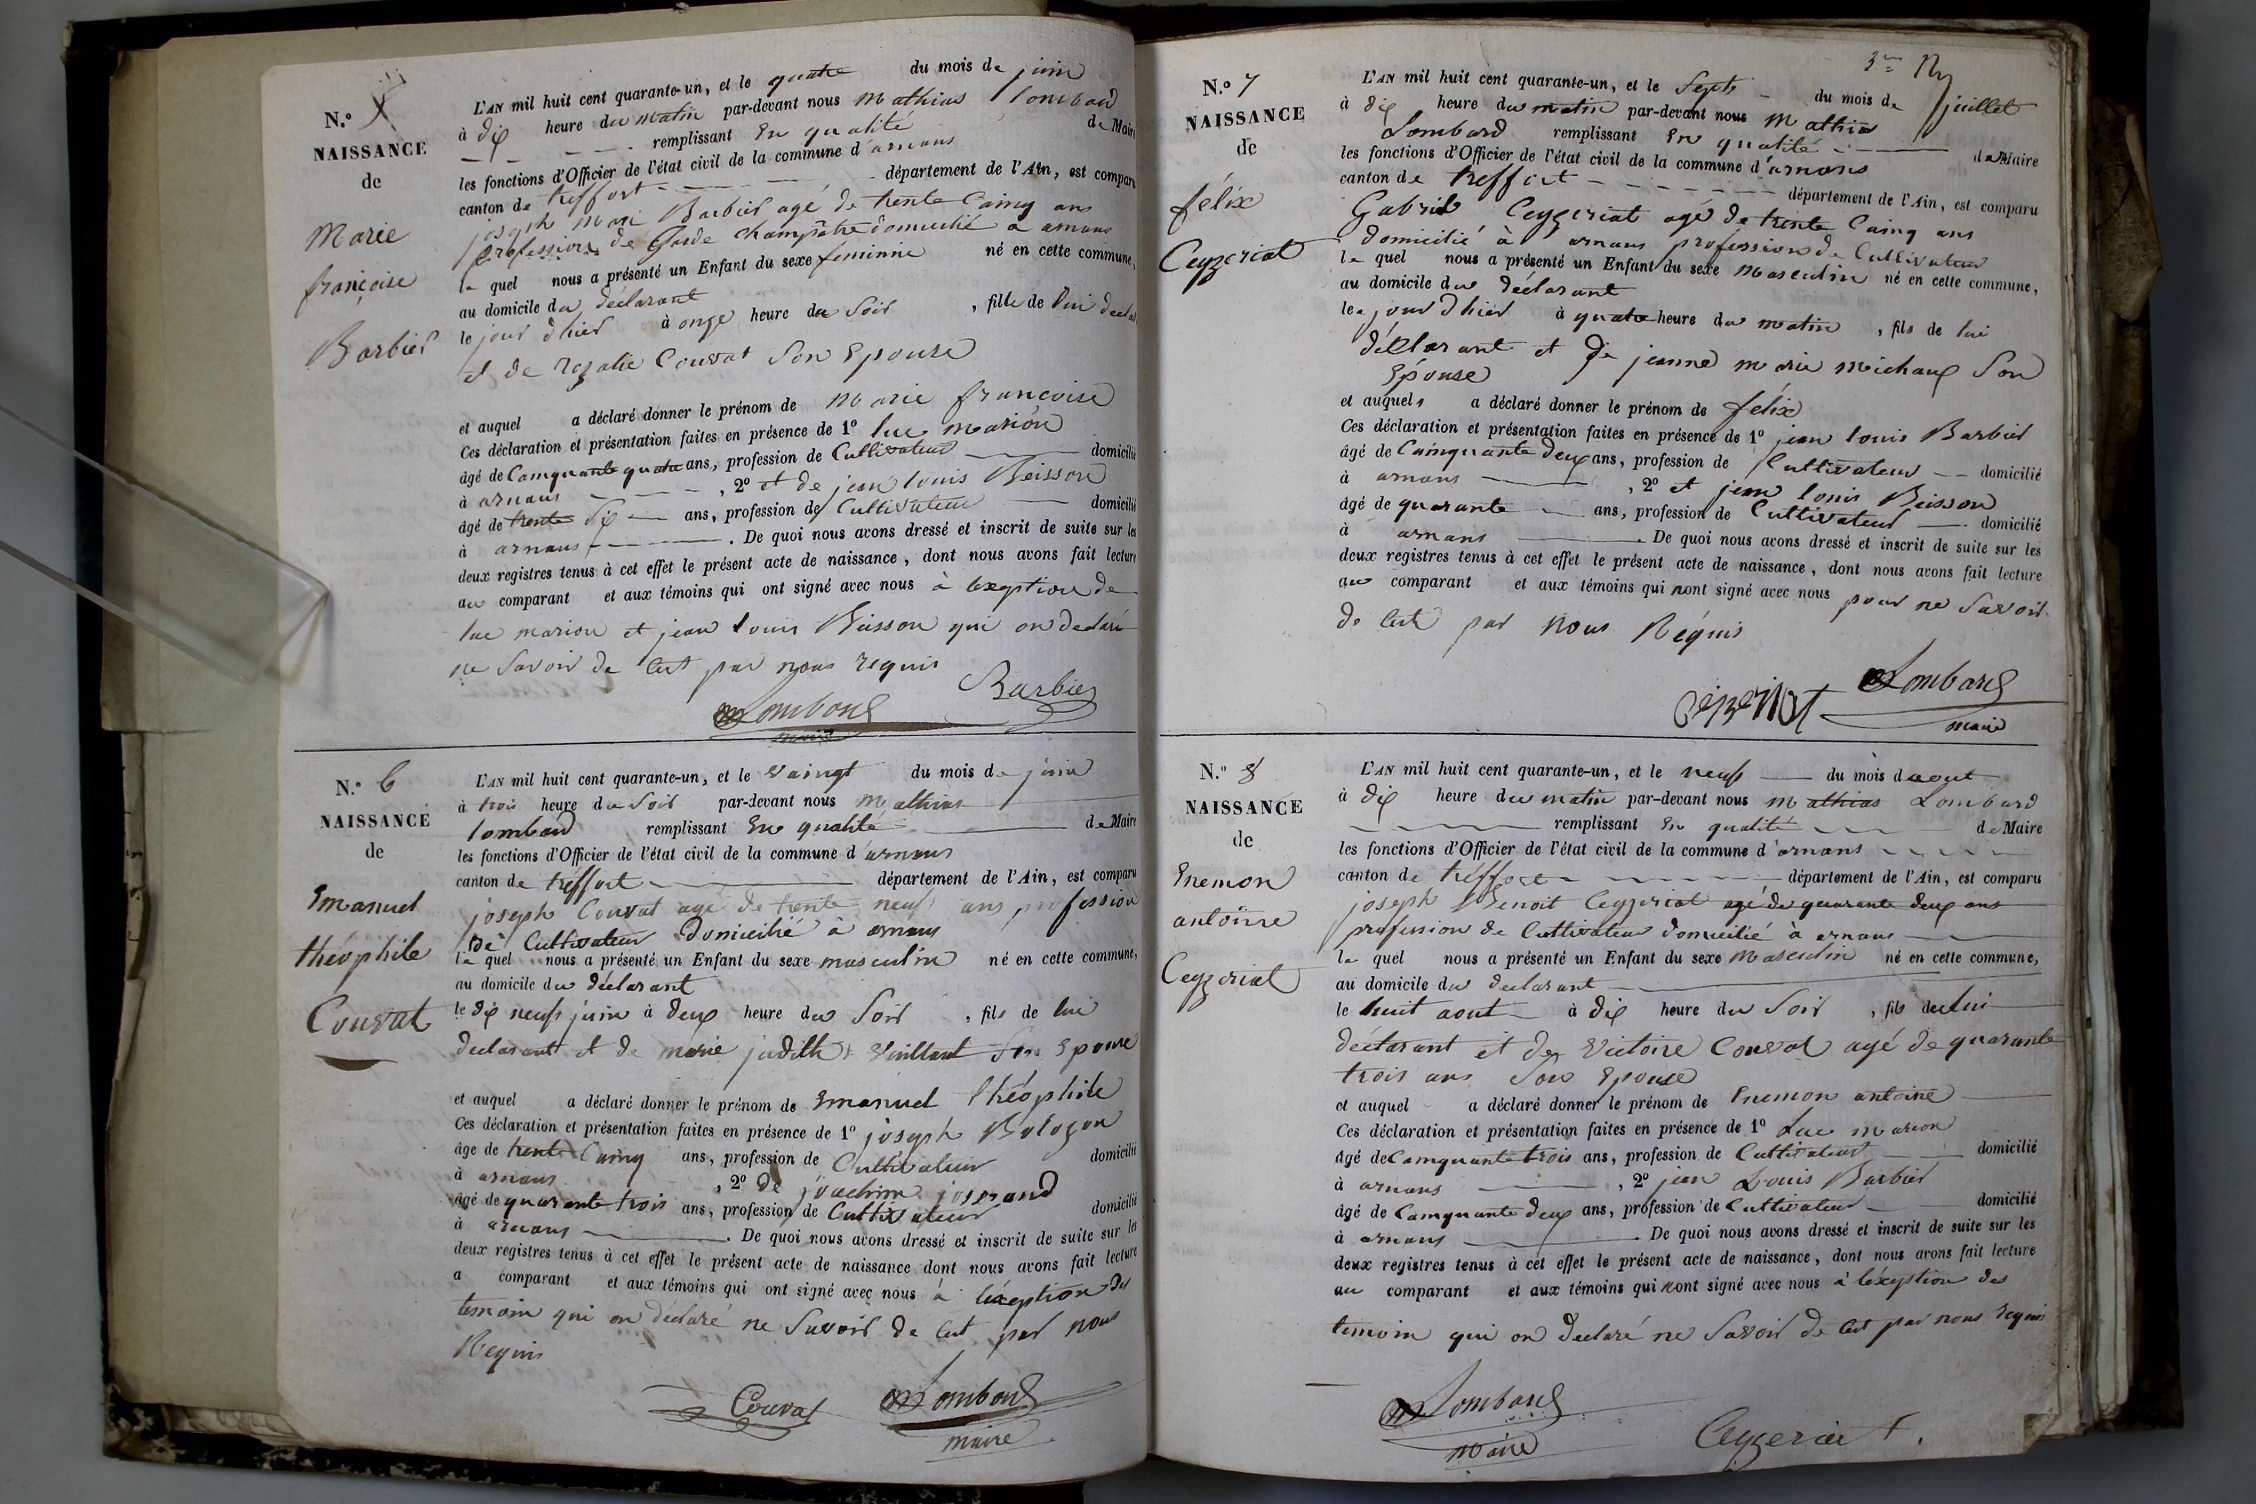 N.º
NAISSANCE
de
Marie
françoise
Barbier
L'AN mil huit cent quarante-un, et le quatre du mois de juin
à dix heure du matin par-devant nous Mathias Lombard
remplissant En qualité de Maire
les fonctions d'Officier de l'état civil de la commune d'arnans
canton de treffort département de l'Ain, est comparu
joseph Mari Barbier agé de trente Cainq ans
profession de Garde champêtre domicilié à arnans
le quel nous a présenté un Enfant du sexe feminine né en cette commune,
au domicile du déclarant
le jour dhier à onze heure du Soir , fille de lui declar
et de rozalie Couvat Son Epouse
et auquel a déclaré donner le prénom de Marie françoise
Ces déclaration et présentation faites en présence de 1º luc marion
âgé de Camquante quatre ans, profession de Cultivateur domicilié
à arnans , 2º et de jean louis Buisson
âgé de trente Six ans, profession de Cultivateur domicilié
à arnans . De quoi nous avons dressé et inscrit de suite sur les
deux registres tenus à cet effet le présent acte de naissance, dont nous avons fait lecture
au comparant et aux témoins qui ont signé avec nous à lexeption de
luc marion et jean louis Buisson qui on declaré
ne Savoir de Cest par nous requis
Lombard Barbier
maire
N.º 6
NAISSANCE
de
Emanuel
théophile
Couvat
L'AN mil huit cent quarante-un, et le vaingt du mois de juin
à trois heure du Soir par-devant nous Mathias
lombard remplissant En qualité de Maire
les fonctions d'Officier de l'état civil de la commune d'arnans
canton de treffort département de l'Ain, est comparu
joseph Couvat agé de trente neuf ans profession
de Cultivateur Domicilié à arnans
le quel nous a présenté un Enfant du sexe masculin né en cette commune,
au domicile du déclarant
le dix neuf juin à deux heure du Soir , fils de lui
declarant et de marie judith Vuillant Son Epouse
et auquel a déclaré donner le prénom de Emanuel théophile
Ces déclaration et présentation faites en présence de 1º joseph Bologon
âgé de trente Cainq ans, profession de Cultivateur domicilié
à arnans , 2º de joachim joserand
âgé de quarante trois ans, profession de Cultivateur domicilié
à arnans . De quoi nous avons dressé et inscrit de suite sur les
deux registres tenus à cet effet le présent acte de naissance dont nous avons fait lecture
a comparant et aux témoins qui ont signé avec nous à léxeption des
temoin qui on déclaré ne Savoir de Cest par nous
Requis
Couvat Lombard
maire
3me
N.º 7
NAISSANCE
de
félix
Ceyzeriat
L'AN mil huit cent quarante-un, et le Sept du mois de juillet
à dix heure du matin par-devant nous Mathias
Lombard remplissant En qualité de Maire
les fonctions d'Officier de l'état civil de la commune d'arnans
canton de treffort département de l'Ain, est comparu
Gabriel Ceyzeriat agé de trente Cainq ans
domicilié à arnans profession de Cultivateur
le quel nous a présenté un Enfant du sexe Masculin né en cette commune,
au domicile du déclarant
le jour dhier à quatre heure du matin , fils de lui
déclarant et de jeanne marie michaux Son
Epouse
et auquel a déclaré donner le prénom de félix
Ces déclaration et présentation faites en présence de 1º jean louis Barbier
âgé de Cainquante deux ans, profession de Cultivateur domicilié
à arnans , 2º et jean louis Buisson
âgé de quarante ans, profession de Cultivateur domicilié
à arnans . De quoi nous avons dressé et inscrit de suite sur les
deux registres tenus à cet effet le présent acte de naissance, dont nous avons fait lecture
au comparant et aux témoins qui nont signé avec nous pour ne Savoir
de Cest par nous Réquis
Lombard
maire
N.º 8
NAISSANCE
de
Enemon
antoine
Ceyzeriat
L'AN mil huit cent quarante-un, et le neuf du mois daout
à dix heure du matin par-devant nous Mathias Lombard
remplissant En qualité de Maire
les fonctions d'Officier de l'état civil de la commune d'arnans
canton de tréffort département de l'Ain, est comparu
joseph Benoit Ceyzeriat agé de quarante deux ans
profession de Cultivateur domicilié à arnans
le quel nous a présenté un Enfant du sexe Masculin né en cette commune,
au domicile du declarant
le huit aout à dix heure du Soir , fils de lui
déclarant et de Victoire Couvat agé de quarante
trois ans Son Epouse
et auquel a déclaré donner le prénom de Enemon antoine
Ces déclaration et présentation faites en présence de 1º Luc marion
âgé de Camquante trois ans, profession de Cultivateur domicilié
à arnans , 2º jean Louis Barbier
âgé de Camquante deux ans, profession de Cultivateur domicilié
à arnans . De quoi nous avons dressé et inscrit de suite sur les
deux registres tenus à cet effet le présent acte de naissance, dont nous avons fait lecture
au comparant et aux témoins qui nont signé avec nous à léxception des
temoin qui on declaré ne Savoir de Cest par nous requis
Lombard
maire Ceyzeriat